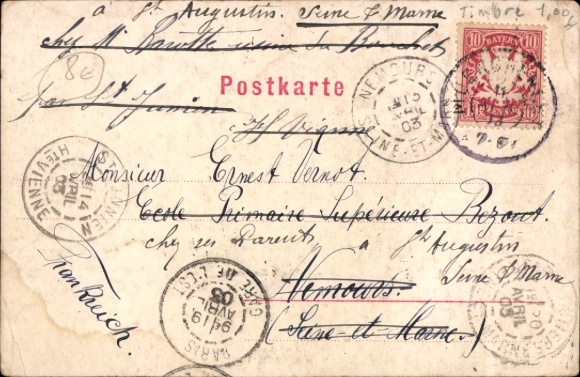 à St Augustin, Seine & Marne
Timbre 1,00
chez Mr Barotte usine du Bouchet
8€
Postkarte
par St Junien
Hte Vienne
BAYERN
10 10
NEMOURS
SEINE-ET-MARNE
AVRIL
03
Monsieur Ernest Vernot.
Ecole Primaire Supérieure Bezout.
chez ses Parents, à St Augustin
Nemours. Seine & Marne
(Seine et Marne.)
Frankreich.
ST JUNIEN
HTE VIENNE
14
AVRIL
03
PARIS
GARE DE L'EST
AVRIL
03
AVRIL
03